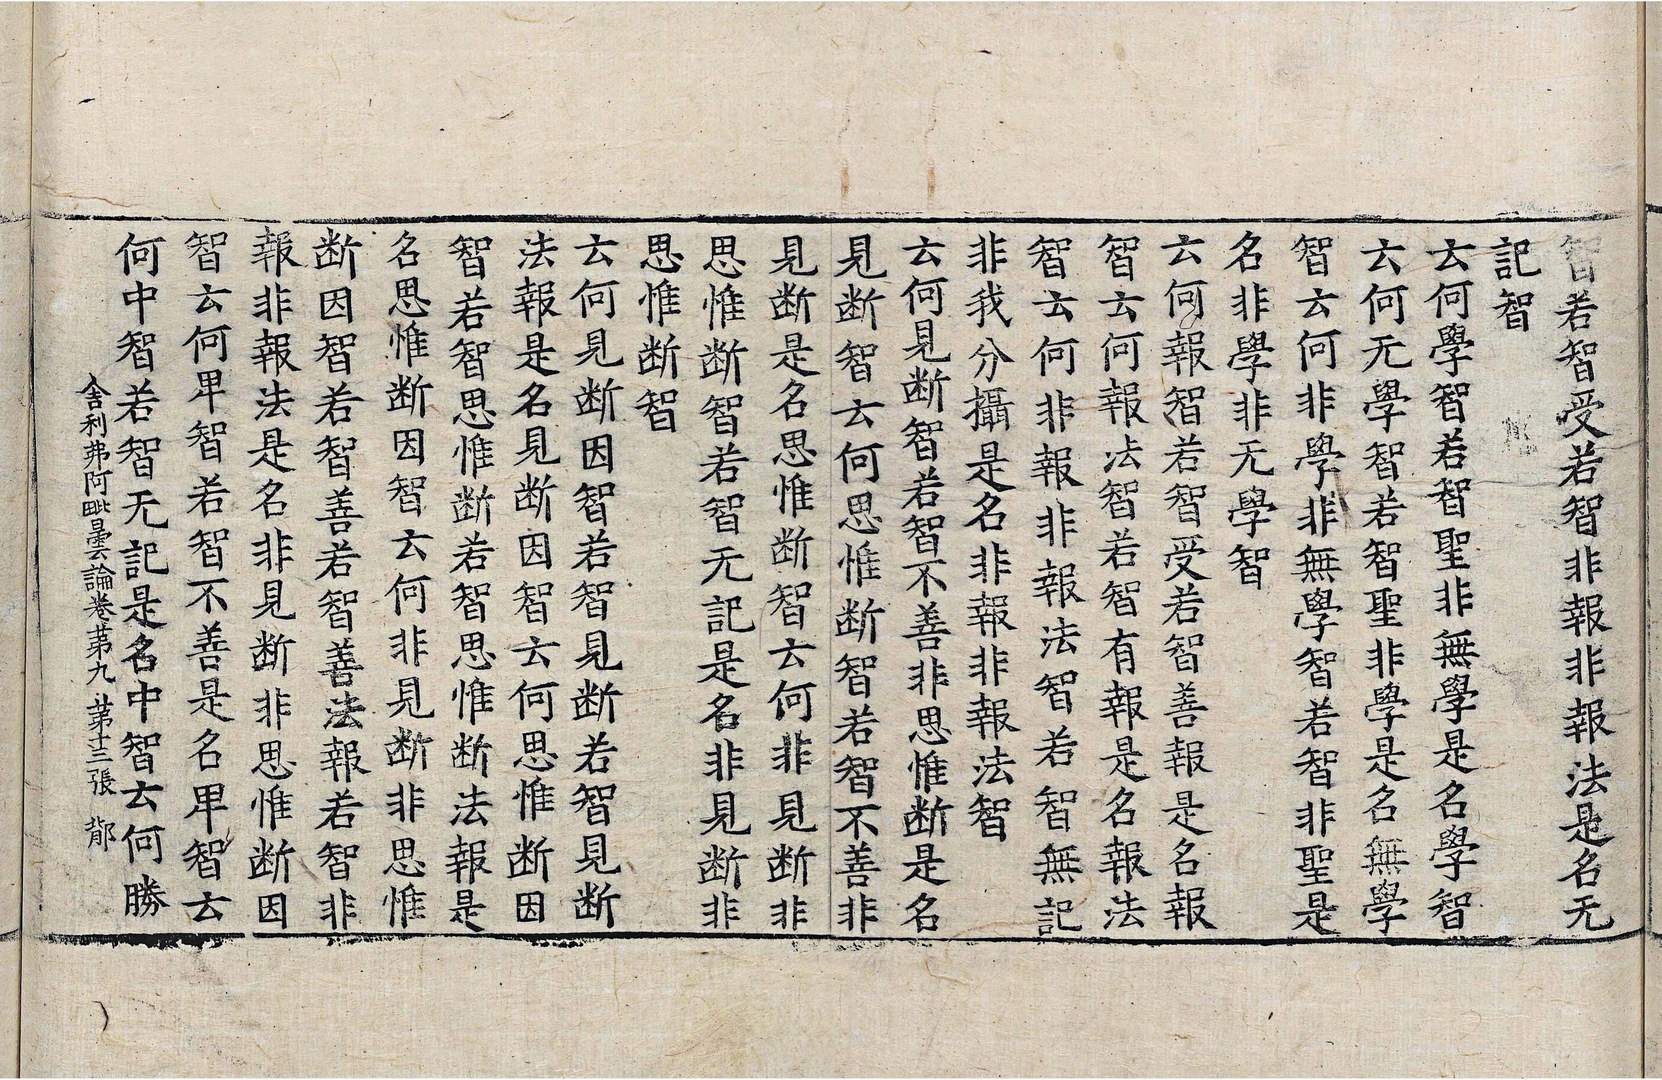 智若智受若智非報非報法是名无
記智
云何學智若智聖非無學是名學智
云何无學智若智聖非學是名無學
智云何非學非無學智若智非聖是
名非學非无學智
云何報智若智受若智善報是名報
智云何報法智若智有報是名報法
智云何非報非報法智若智無記
非我分攝是名非報非報法智
云何見断智若智不善非思惟断是名
見断智云何思惟断智若智不善非
見断是名思惟断智云何非見断非
思惟断智若智无記是名非見断非
思惟断智
云何見断因智若智見断若智見断
法報是名見断因智云何思惟断因
智若智思惟断若智思惟断法報是
名思惟断因智云何非見断非思惟
断因智若智善若智善法報若智非
報非報法是名非見断非思惟断因
智云何卑智若智不善是名卑智云
何中智若智无記是名中智云何勝
舍利弗阿毗曇論卷第九 第十三張